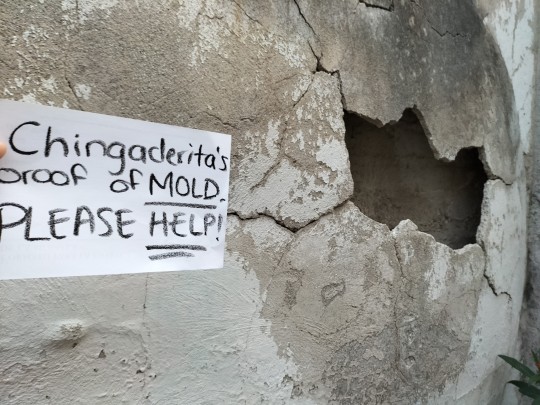 Chingaderita's
proof of MOLD.
PLEASE HELP!